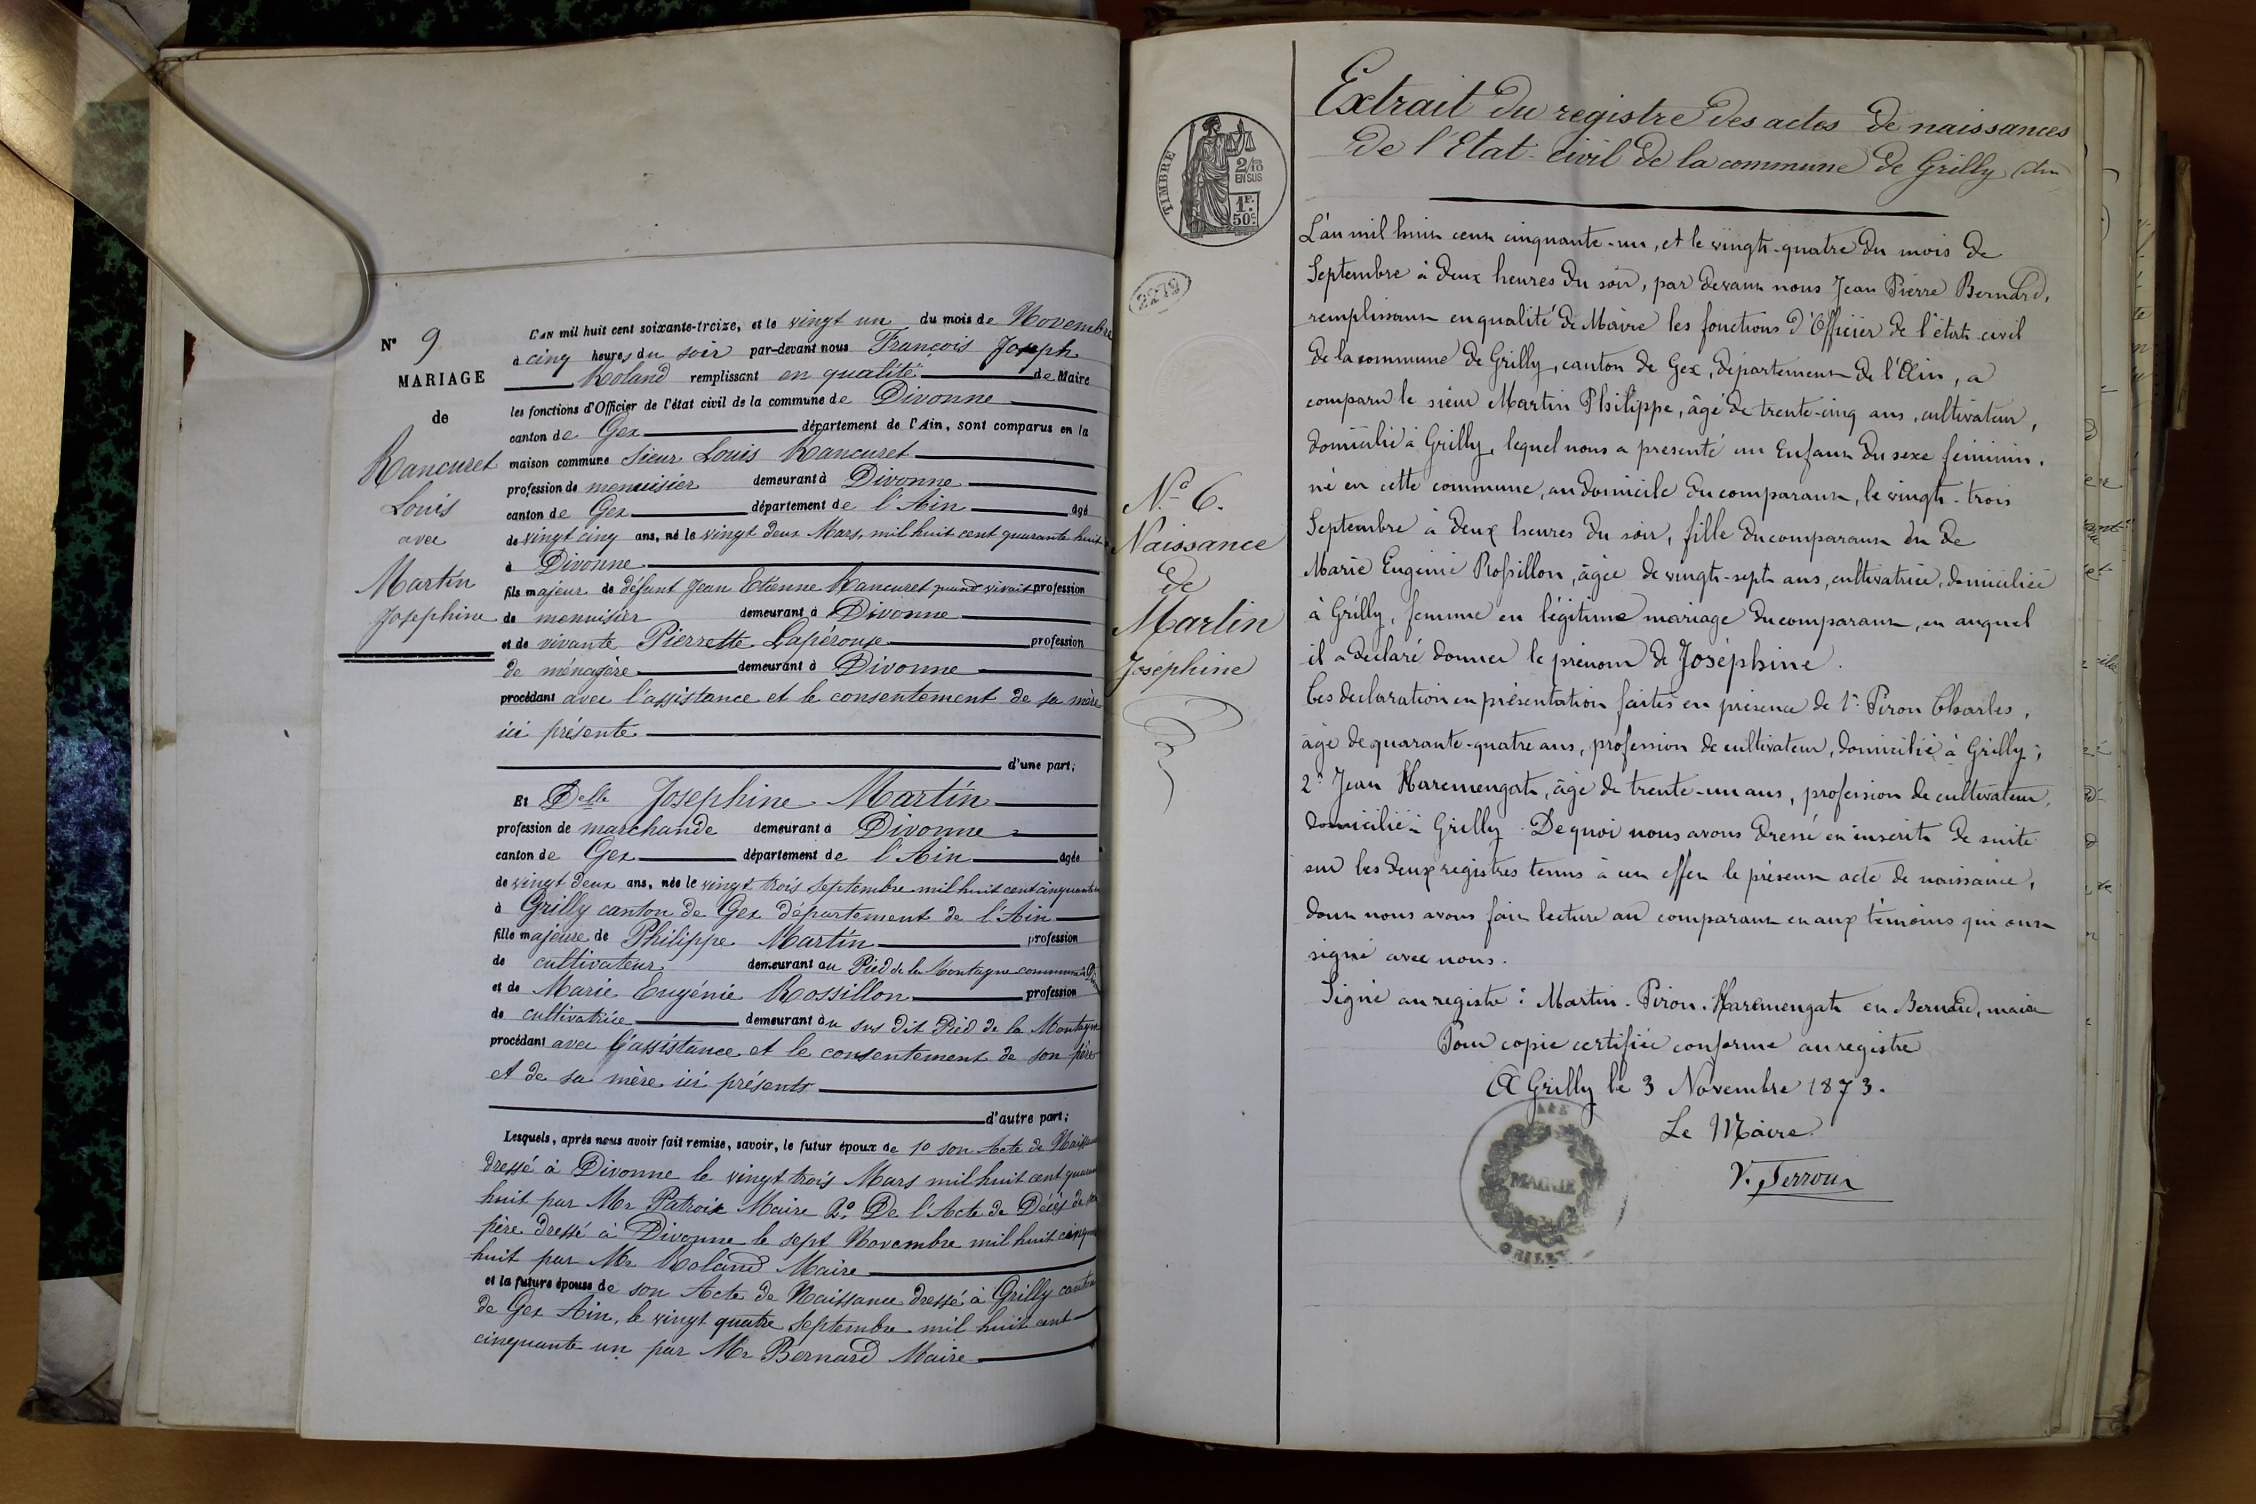 N° 9
MARIAGE
de
Rancuret
Louis
avec
Martin
Josephine
L'AN mil huit cent soixante-treize, et le vingt un du mois de Novembre
à cinq heures du soir par-devant nous François Joseph
Roland remplissant en qualité de Maire
les fonctions d'Officier de l'état civil de la commune de Divonne
canton de Gex département de l'Ain, sont comparus en la
maison commune sieur Louis Rancuret
profession de menuisier demeurant à Divonne
canton de Gex département de l'Ain âgé
de vingt cinq ans, né le vingt deux Mars, mil huit cent quarante huit
à Divonne
fils majeur de défunt Jean Etienne Rancuret quand vivait profession
de menuisier demeurant à Divonne
et de vivante Pierrette Lapérouse profession
de ménagère demeurant à Divonne
procédant avec l'assistance et le consentement de sa mère
ici présente
d'une part;
Et Delle Josephine Martin
profession de marchande demeurant à Divonne
canton de Gex département de l'Ain âgée
de vingt deux ans, née le vingt trois Septembre mil huit cent cinquante
à Grilly canton de Gex département de l'Ain
fille majeure de Philippe Martin profession
de cultivateur demeurant au Pied de la Montagne commune
et de Marie Eugénie Rossillon profession
de cultivatrice demeurant au sus dit Pied de la Montagne
procédant avec l'assistance et le consentement de son père
et de sa mère ici présents
d'autre part;
Lesquels, après nous avoir fait remise, savoir, le futur époux de 1º son Acte de Naissance
dressé à Divonne le vingt trois Mars mil huit cent
huit par Mr Patroix Maire 2º De l'Acte de Décès de
père dressé à Divonne le sept Novembre mil huit
huit par Mr Roland Maire
et la future épouse de son Acte de Naissance dressé à Grilly canton
de Gex Ain, le vingt quatre Septembre mil huit cent
cinquante un par Mr Bernard Maire
TIMBRE
2/10
EN SUS
1F.
50c.
No 6.
Naissance
de
Martin
Joséphine
Extrait du registre des actes de naissances
de l'Etat-civil de la commune de Grilly
L'an mil huit cent cinquante-un, et le vingt-quatre du mois de
Septembre à deux heures du soir, par devant nous Jean Pierre Bernard,
remplissant en qualité de Maire les fonctions d'Officier de l'état-civil
de la commune de Grilly, canton de Gex, département de l'Ain, a
comparu le sieur Martin Philippe, âgé de trente-cinq ans, cultivateur,
domicilié à Grilly, lequel nous a présenté un Enfant du sexe féminin,
né en cette commune, au domicile du comparant, le vingt-trois
Septembre à deux heures du soir, fille du comparant et de
Marie Eugénie Rossillon, âgée de vingt-sept ans, cultivatrice, domiciliée
à Grilly, femme en légitime mariage du comparant, et auquel
il a déclaré donner le prénom de Joséphine.
Ces déclaration et présentation faites en présence de 1º Piron Charles,
âgé de quarante-quatre ans, profession de cultivateur, domicilié à Grilly;
2º Jean Haremengat, âgé de trente-un ans, profession de cultivateur,
domicilié à Grilly. De quoi nous avons dressé et inscrit de suite
sur les deux registres tenus à cet effet le présent acte de naissance,
dont nous avons fait lecture au comparant et aux témoins qui ont
signé avec nous.
Signé au registre: Martin. Piron. Haremengat et Bernard, maire
Pour copie certifiée conforme au registre
A Grilly le 3 Novembre 1873.
Le Maire
MAIRIE
GRILLY